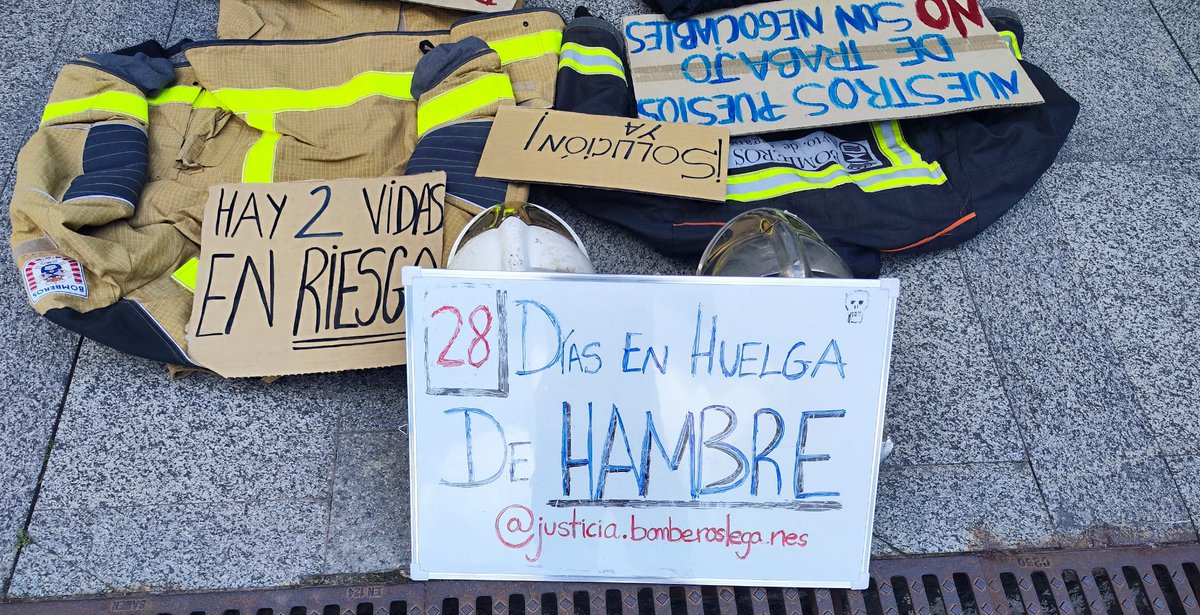 NUESTROS PUESTOS
DE TRABAJO
NO SON NEGOCIABLES
¡SOLUCIÓN!
YA
BOMBEROS
HAY 2 VIDAS
EN RIESGO
BOMBEROS
28 DÍAS EN HUELGA
DE HAMBRE
@justicia.bomberoslega.nes
EN 124
C250